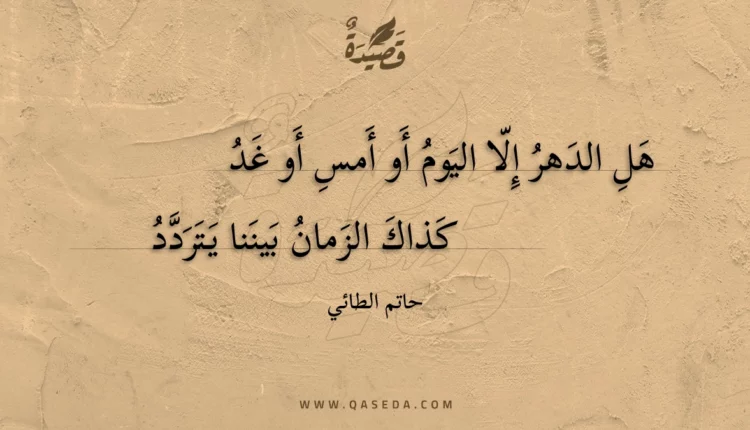 قَصِيدَةٌ
هَلِ الدَهرُ إِلّا اليَومُ أَو أَمسِ أَو غَدُ
كَذاكَ الزَمانُ بَينَنا يَتَرَدَّدُ
حاتم الطائي
WWW.QASEDA.COM